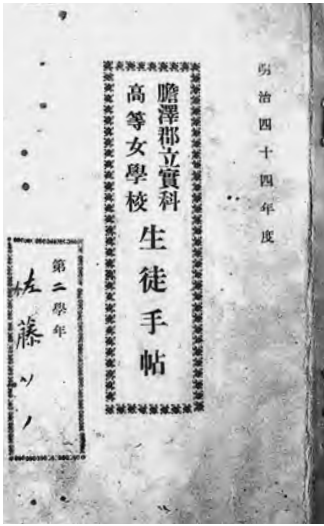 明治四十四年度
膽澤郡立實科
高等女學校
生徒手帖
第二學年
佐藤ツノ